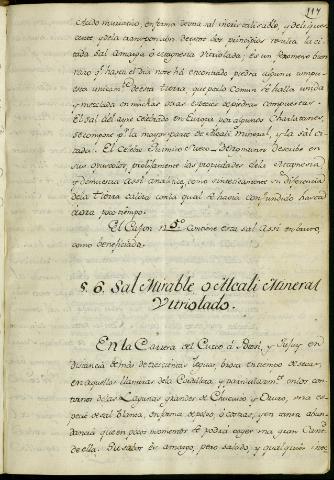 117
cado muriatico, en forma de una sal incristalisable, y deliques-
cente y de la transposicion de estos dos principios resulta la ci-
tada sal amarga ó magnesia vitriolada; es un fenomeno bien
raro qe. hasta el dia no se há encontrado piedra alguna compu-
esta unicamte. de esta tierra que por lo comun se halla unida
y mezclada en muchas otras especies de piedras compuestas.
El sal del ayre Celebrado en Europa por algunos Charlatanes,
se compone pr. la mayor parte de Alcali mineral, y la sal ci-
tada. El Celebre Quimico Sueco, Bergman describe en
sus opusculos, prolijamente las propiedades de la Magnesia,
y demuestra assi analitica, como sinteticamente su diferencia
de la tierra caliza con la qual se havia confundido hasta
ahora poco tiempo.
El Cajon n. 5º contiene esta sal assi en bruto,
como beneficiada.
§. 6. Sal Mirable o Alcali Mineral
Vitriolado.
En la Carrera del Cuzco á Potosi, y Jujuy en
distancia de más de trescientas leguas brota en tiempo de secas,
en aquellas llanuras de la Cordillera, y particularmte. en los con-
tornos de las Lagunas grandes de Chucuito y Oruro, una es-
pecie de sal blanca, en forma de polvo, ó costras, y en tanta abun-
dancia que en pocos momentos se podrá coger una gran Cantd.
de ella. Su sabor es amargo, pero salado, y qualquier inte